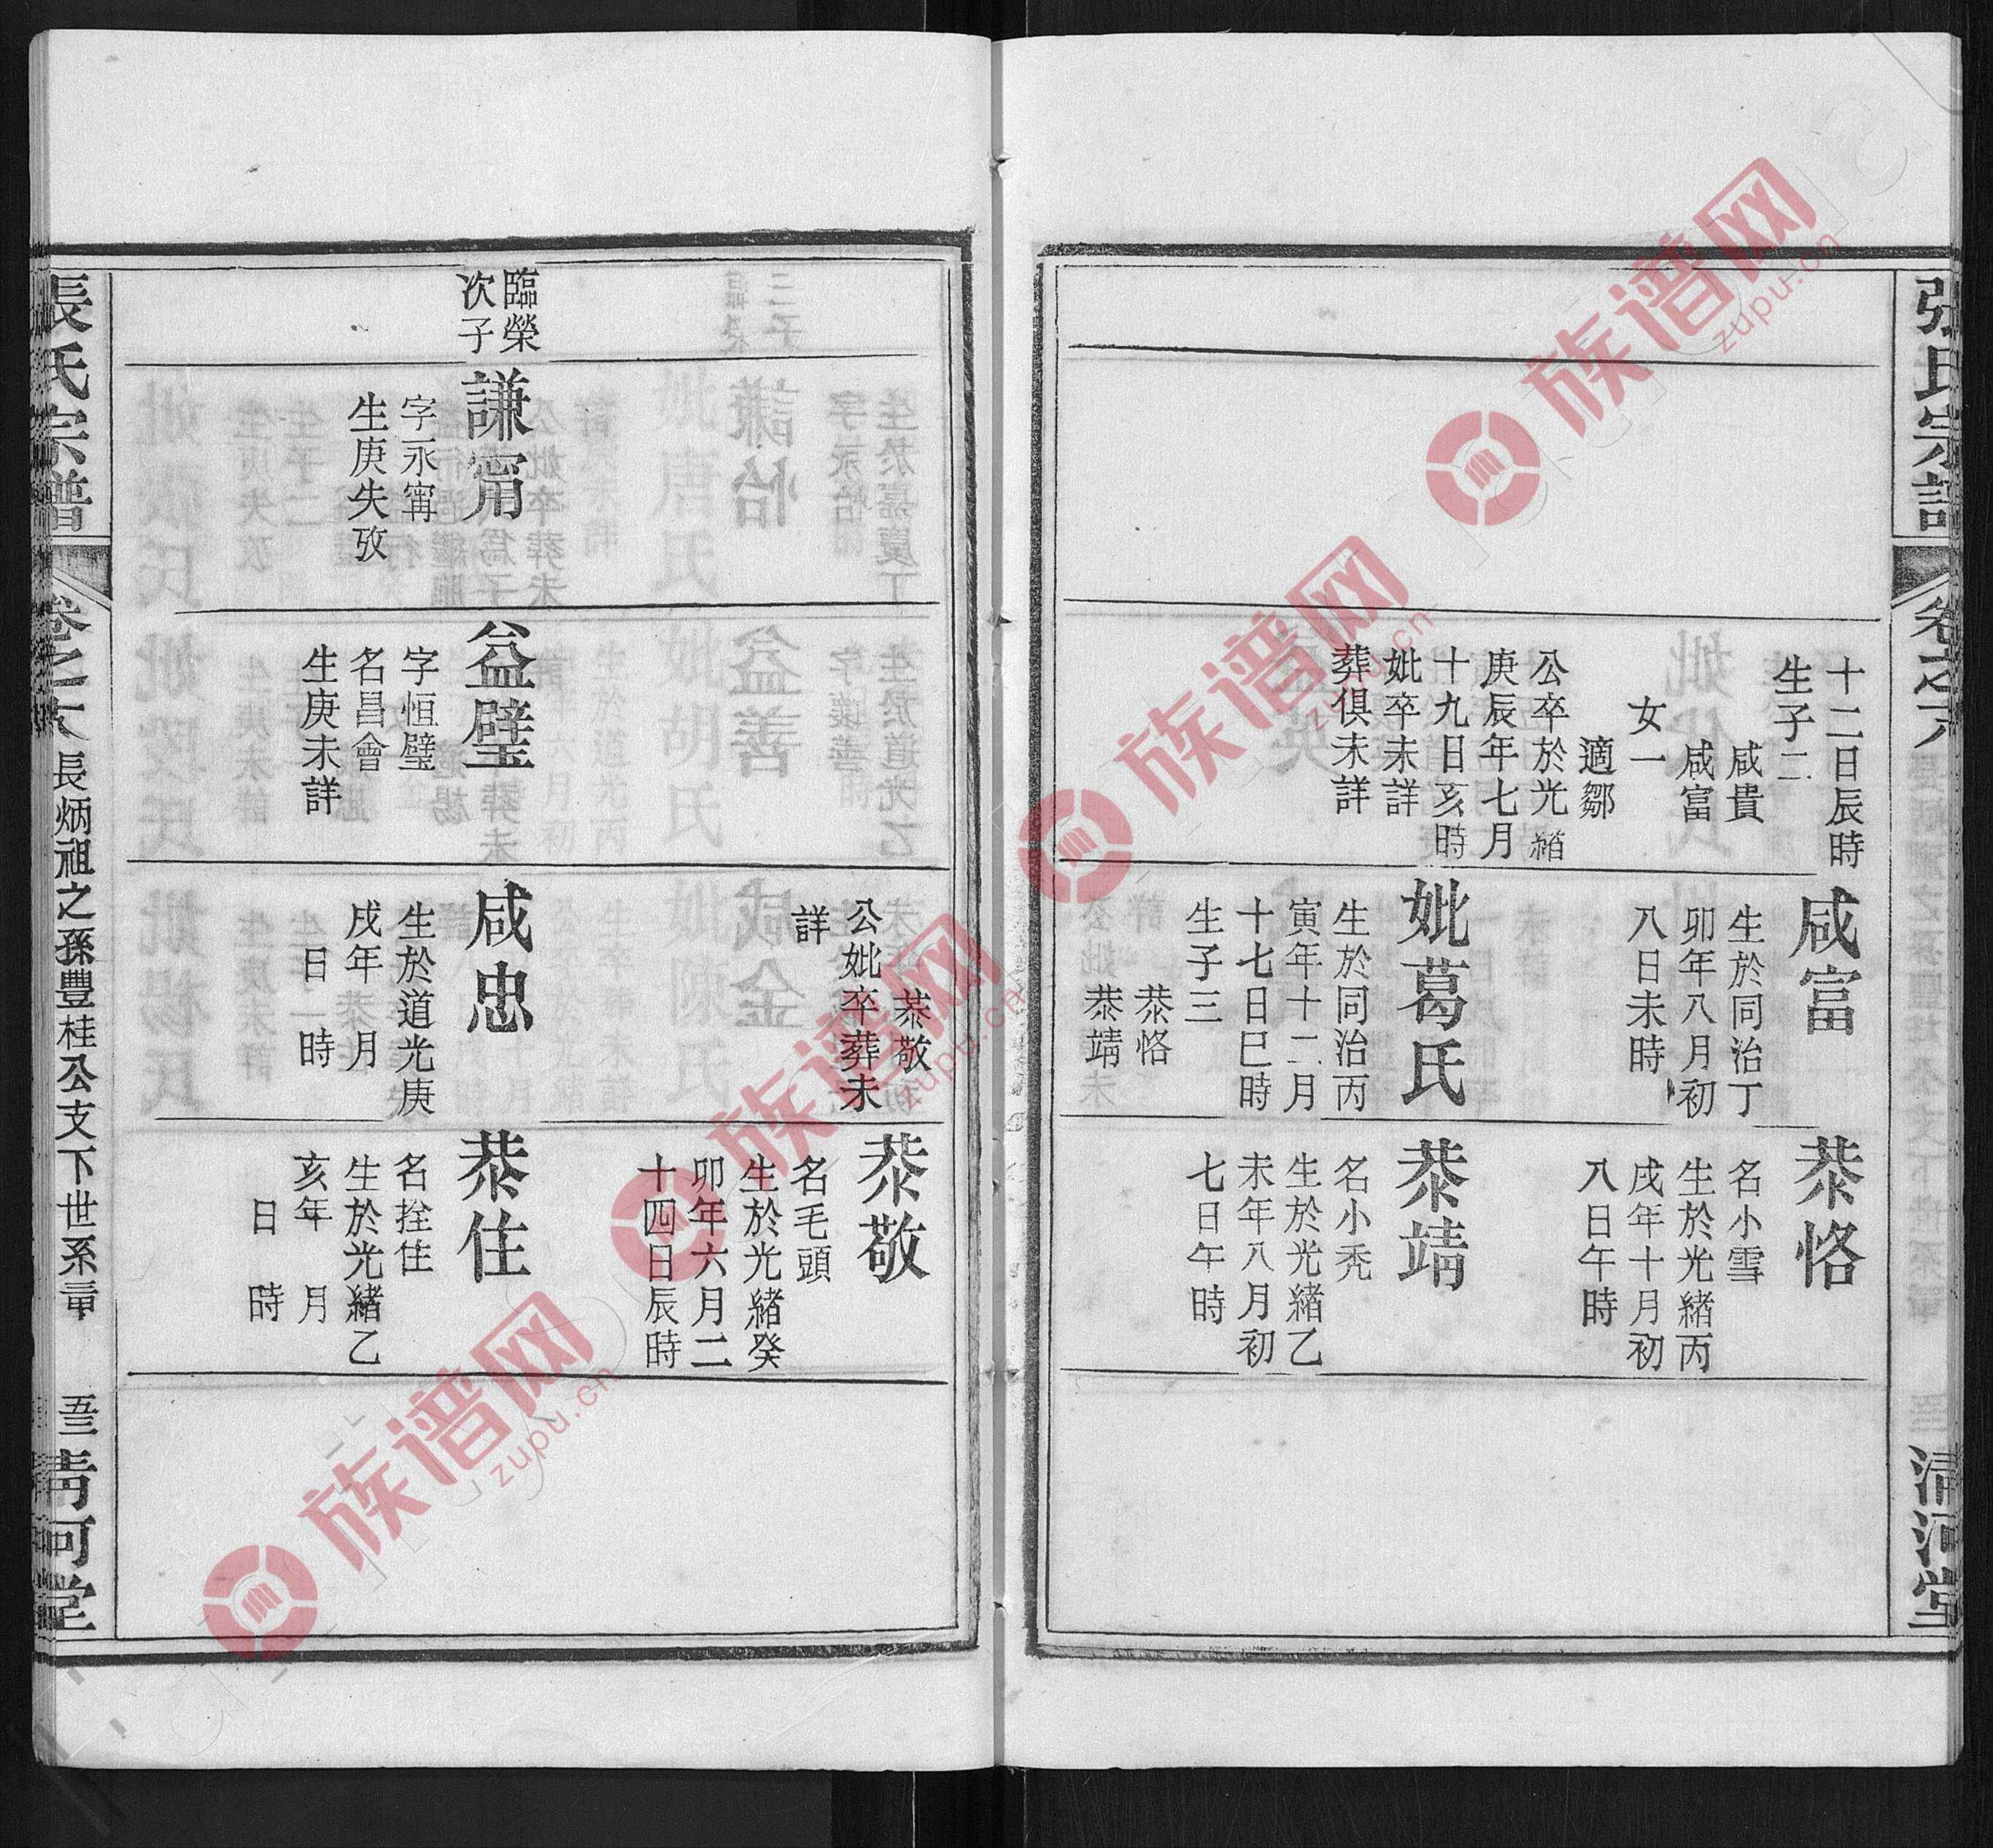 張氏宗譜
卷之六
清河堂
十二日辰時
生子二
咸貴
咸富
女一
適鄒
公卒於光緒
庚辰年七月
十九日亥時
妣卒未詳
葬俱未詳
咸富
生於同治丁
卯年八月初
八日未時
妣葛氏
生於同治丙
寅年十二月
十七日巳時
生子三
恭恪
恭靖
恭恪
名小雪
生於光緒丙
戌年十月初
八日午時
恭靖
名小秃
生於光緒乙
未年八月初
七日午時
臨榮
次子
謙甯
字永甯
生庚失攷
益璧
字恒璧
名昌會
生庚未詳
恭敬
公妣卒葬未
詳
咸忠
生於道光庚
戌年　月
日　時
恭敬
名毛頭
生於光緒癸
卯年六月二
十四日辰時
恭住
名拴住
生於光緒乙
亥年　月
日　時
張氏宗譜
卷之六
長炳祖之孫豐桂公支下世系
清河堂
族谱网
zupu.cn
族谱网
zupu.cn
族谱网
zupu.cn
族谱网
zupu.cn